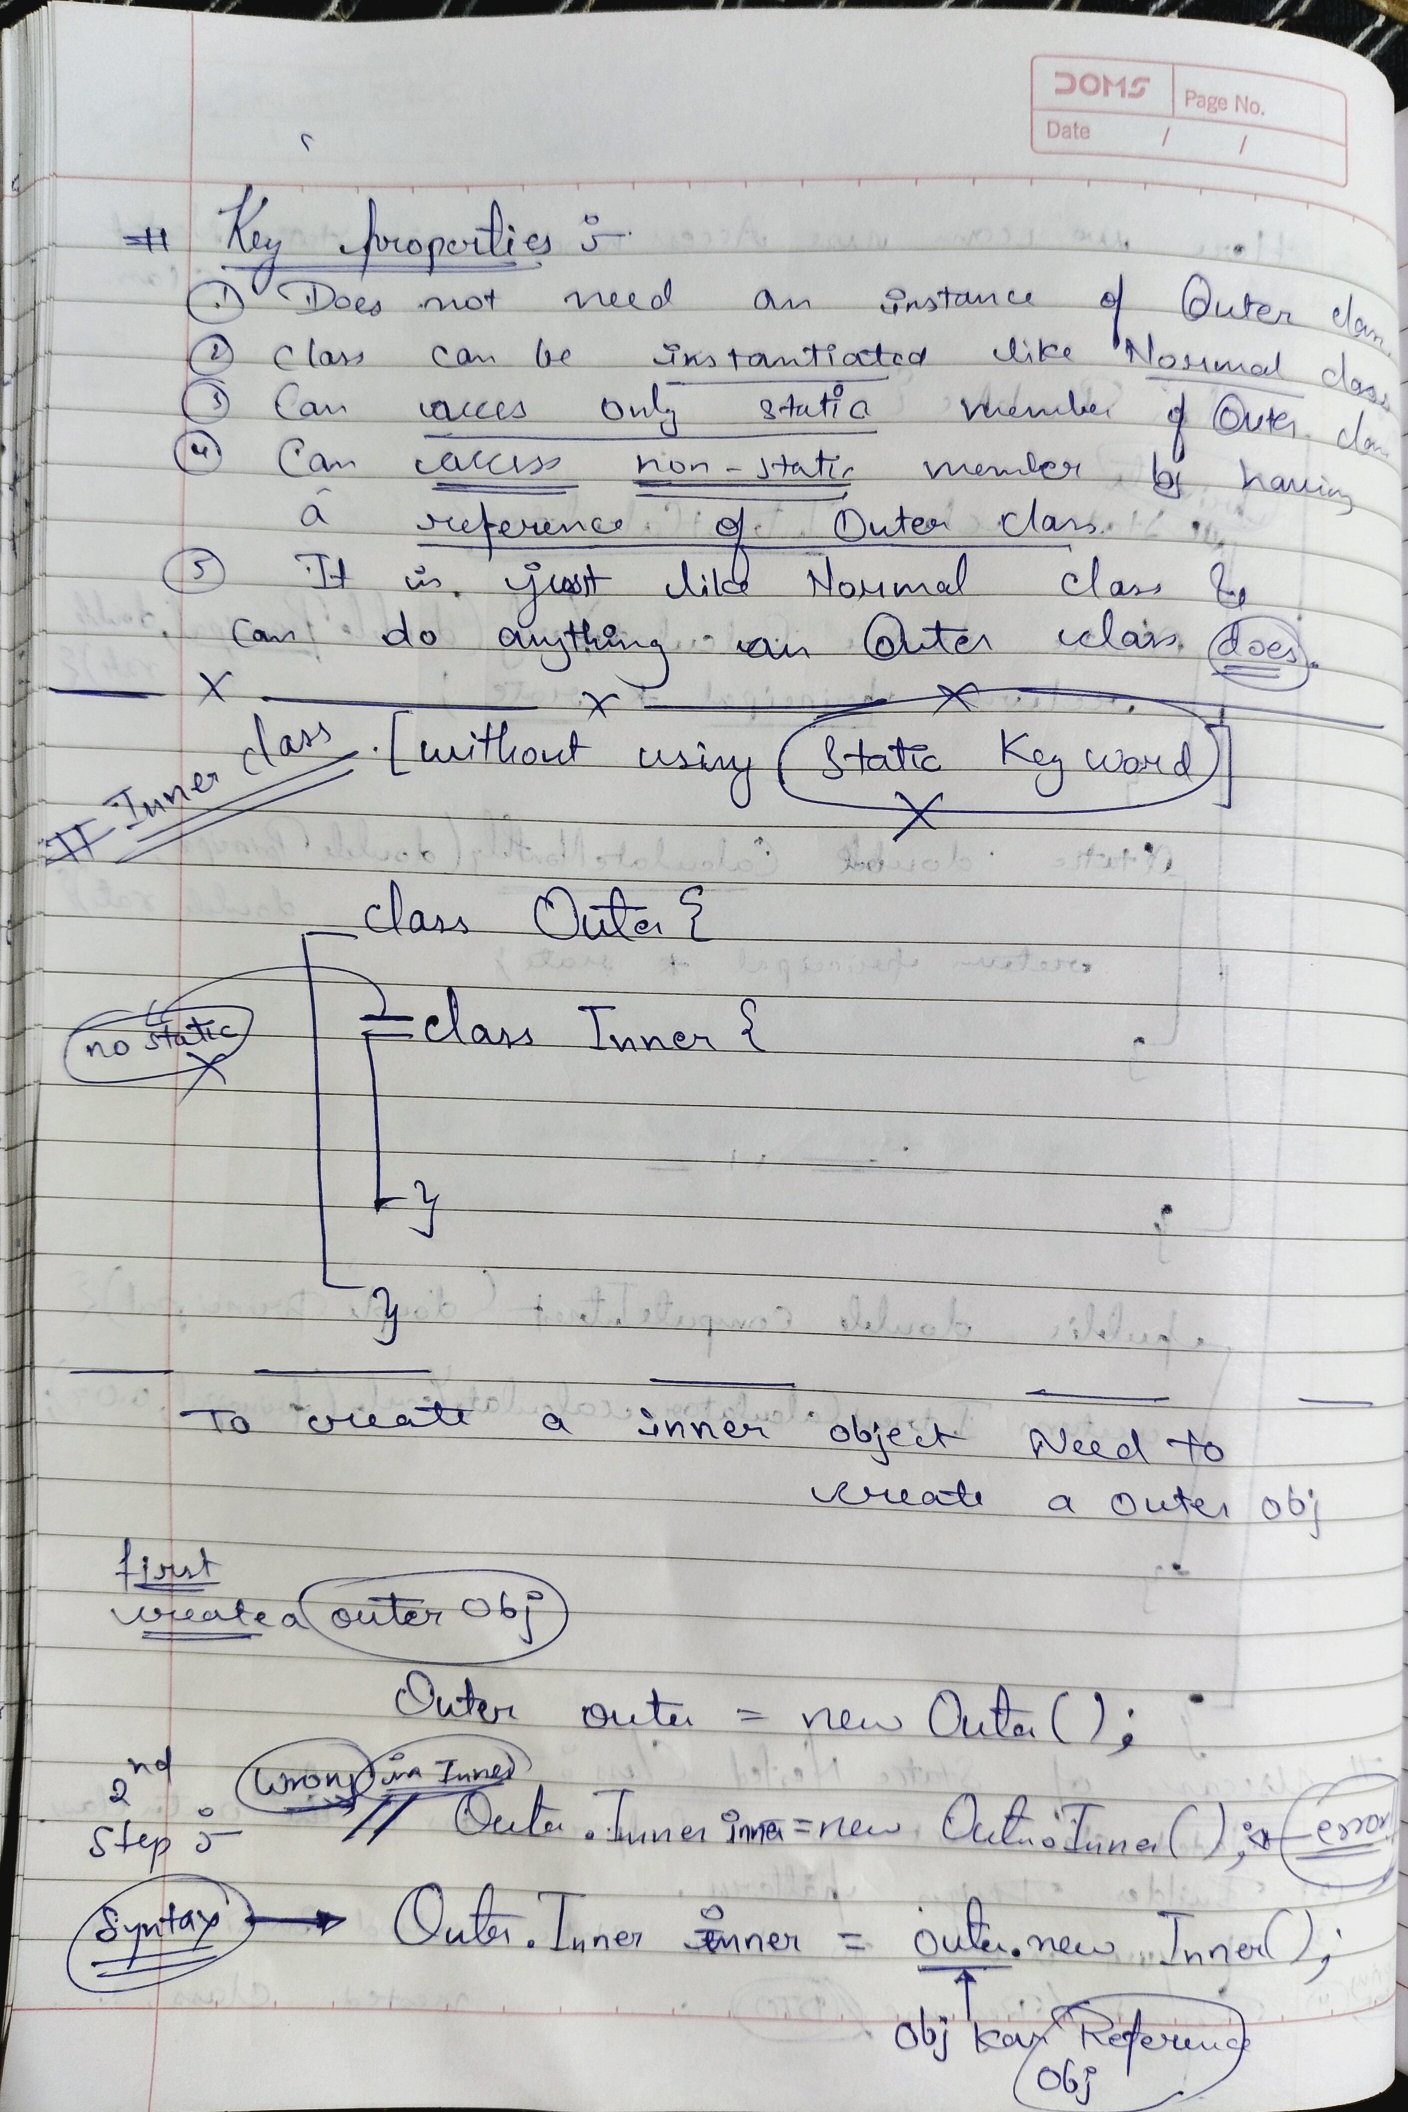 DOMS
Page No.
Date / /
# Key properties :-
① Does not need an instance of Outer class
② class can be instantiated like Normal class
③ Can acces only static member of Outer class
④ Can access non-static member by having
a reference of Outer class.
⑤ It is just like Normal class &
can do anything an Outer class does.
X X X
# Inner class . [without using static Key word]
X
class Outer {
no static
X
class Inner {
}
}
To create a inner object Need to
create a outer obj
first
create a outer obj
Outer outer = new Outer();
2nd
Step :-
wrong in Inner
// Outer.Inner inner = new Outer.Inner(); ← error
Syntax → Outer.Inner inner = outer.new Inner();
↑
obj kar Reference
obj